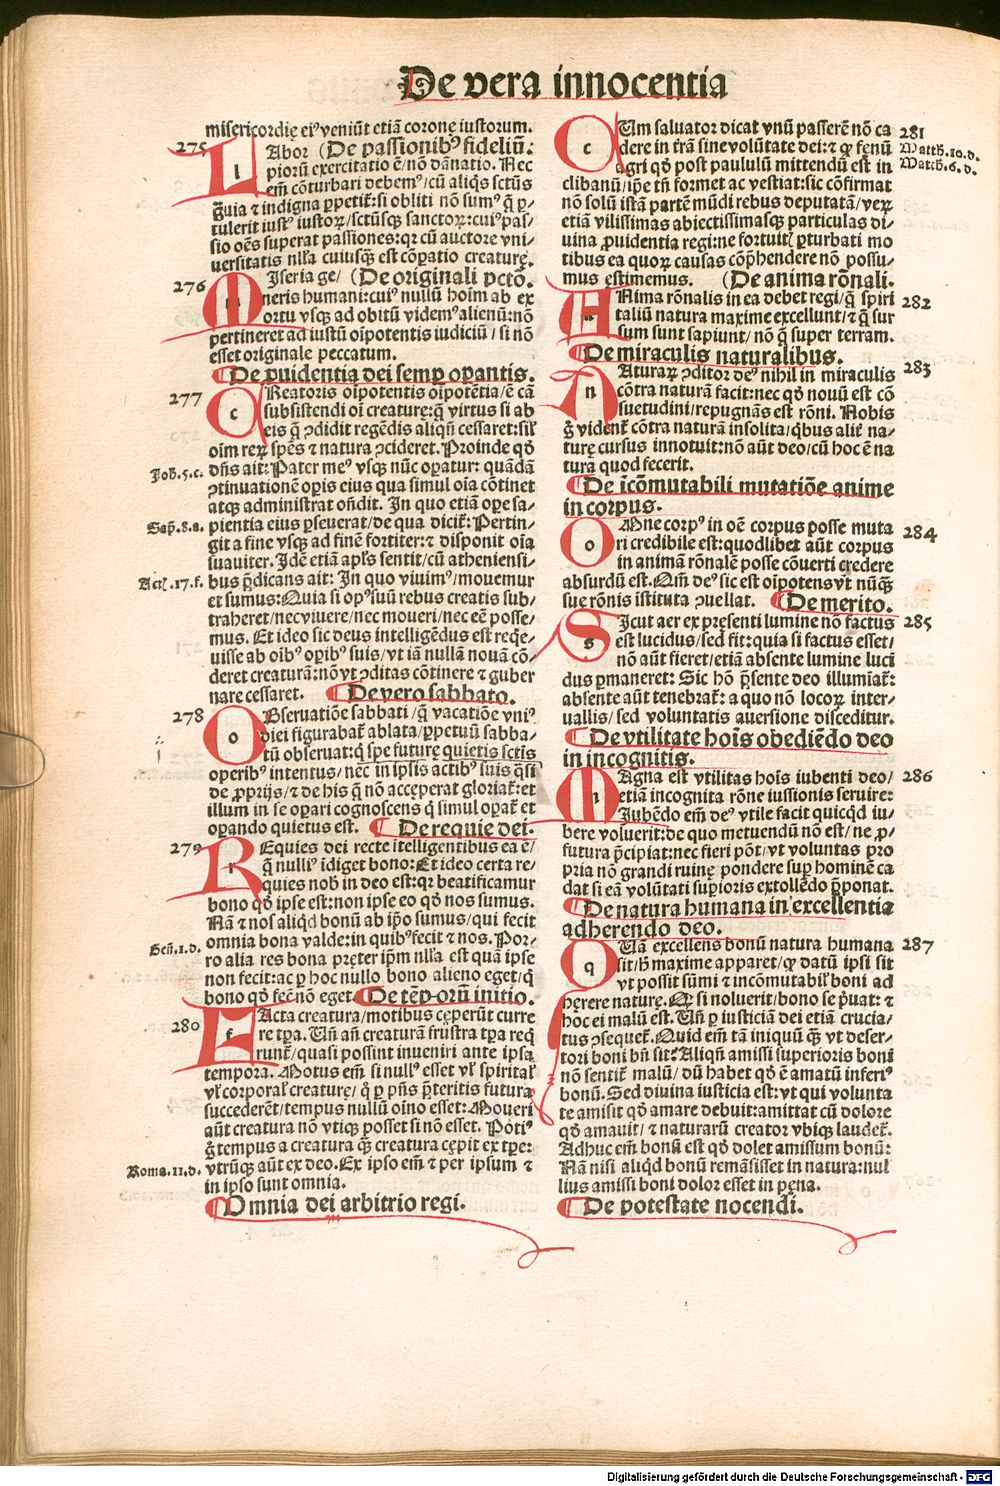 De vera innocentia
misericordię eiꝰ veniũt etiã coronę iustorum.
275
LAbor (De passionibꝰ fideliũ.
piorũ exercitatio ẽ/nõ dãnatio. Nec
em̃ cõturbari debemꝰ/cũ aliq̃s sctũs
gr̃uia ⁊ indigna ꝑpetit̃:si obliti nõ sumꝰ q̃ ꝑ-
tulerit iustꝰ iustoꝝ/sctũsq̃ sanctoꝝ:cuiꝰ pas/
sio oẽs superat passiones:qꝛ cũ auctore vni/
uersitatis nll̃a cuiusq̃ est cõꝑatio creaturę.
276
MIseria ge/ (De originali pctõ.
neris humani:cuiꝰ nullũ hoĩm ab ex
ortu vsq̃ ad obitũ videmꝰ alienũ:nõ
pertineret ad iustũ oĩpotentis iudiciũ/si nõ
esset originale peccatum.
De ꝓuidentia dei semꝑ oꝑantis.
277
CReatoris oĩpotentis oĩpotẽtia/ẽ cã
subsistendi oĩ creaturę:q̃ virtus si ab
eis q̃ ꝯdidit regẽdis aliqñ cessaret:sil̃
oĩm reꝝ spẽs ⁊ natura ꝯcideret. Proinde qđ
Joh.5.c.
dñs ait:Pater meꝰ vsq̃ nũc oꝑatur: quãdã
ꝯtinuationẽ oꝑis eius qua simul oĩa cõtinet
atq̃ administrat oñdit. In quo etiã oꝑe sa/
Sap̃.8.a.
pientia eius ꝑseuerat/de qua dicit̃:Pertin/
git a fine vsq̃ ad finẽ fortiter:⁊ disponit oĩa
suauiter. Idẽ etiã apl̃s sentit/cũ atheniensi/
Act̃.17.f.
bus p̃dicans ait: In quo viuimꝰ/mouemur
et sumus:Quia si opꝰ suũ rebus creatis sub/
traheret/nec viuere/nec moueri/nec eẽ posse/
mus. Et ideo sic deus intelligẽdus est req̃e/
uisse ab oĩbꝰ oꝑibꝰ suis/vt iã nullã nouã cõ/
deret creaturã:nõ vt ꝯditas cõtinere ⁊ guber
nare cessaret. De vero sabbato.
278
OBseruatiõe sabbati/q̃ vacatiõe vniꝰ
diei figurabat̃ ablata/ꝑpetuũ sabba-
tũ obseruat:q̃ spe futurę quietis sctĩs
operibꝰ intentus/nec in ipsis actibꝰ suis q̃si
de ꝓprijs/⁊ de his q̃ nõ acceperat gloriat̃:et
illum in se oꝑari cognoscens q̃ simul oꝑat̃ et
oꝑando quietus est. De requie dei.
279
REquies dei recte itelligentibus ea ẽ/
q̃ nulliꝰ idiget bono: Et ideo certa re-
quies nob̃ in deo est:qꝛ beatificamur
bono qđ ipse est:non ipse eo qđ nos sumus.
Nã ⁊ nos aliqđ bonũ ab ip̃o sumus/qui fecit
Gen̄.1.d.
omnia bona valde:in quibꝰ fecit ⁊ nos. Por/
ro alia res bona pręter ip̃m nll̃a est quã ipse
non fecit:ac ꝑ hoc nullo bono alieno eget/q̃
bono qđ fec̃ nõ eget. De tẽpoꝛũ initio.
280
FActa creatura/motibus cęperũt curre
re tꝑa. Vñ añ creaturã frustra tꝑa req̃
runt̃/quasi possint inueniri ante ipsa
tempora. Motus em̃ si nullꝰ esset vl̃ spiritał
vł corporał creaturę/q̃ ꝑ p̃ns p̃teritis futura
succederẽt/tempus nullũ oĩno esset: Moueri
aũt creatura nõ vtiq̃ posset si nõ esset. Potiꝰ
g̃ tempus a creatura q̃ creatura cępit ex tꝑe:
Roma.11.d.
vtrũq̃ aũt ex deo. Ex ipso em̃ ⁊ per ipsum ⁊
in ipso sunt omnia.
Omnia dei arbitrio regi.
281
CUm saluator dicat vnũ passerẽ nõ ca
Matth.10.d.
dere in trã sine volũtate dei:⁊ ꝙ fęnũ
Matth.6.d.
agri qđ post paululũ mittendũ est in
clibanũ/ip̃e tñ formet ac vestiat:sic cõfirmat
nõ solũ istã partẽ mũdi rebus deputatã/veꝝ
etiã vilissimas abiectissimasq̃ particulas di/
uina ꝓuidentia regi:ne fortuit̃ ꝑturbati mo
tibus ea quoꝝ causas cõp̃hendere nõ possu/
mus ęstimemus. (De anima rõnali.
282
ANima rõnalis in ea debet regi/q̃ spiri
taliũ natura maxime excellunt/⁊ q̃ sur
sum sunt sapiunt/nõ q̃ super terram.
De miraculis naturalibus.
283
NAturaꝝ ꝯditor deꝰ nihil in miraculis
cõtra naturã facit:nec qđ nouũ est cõ
suetudini/repugnãs est rõni. Nobis
g̃ vident̃ cõtra naturã insolita/q̃bus alit̃ na/
turę cursus innotuit:nõ aũt deo/cũ hoc ẽ na
tura quod fecerit.
De ĩcõmutabili mutatiõe anime
in corpus.
284
OMne corpꝰ in oẽ corpus posse muta
ri credibile est:quodlibet aũt corpus
in animã rõnalẽ posse cõuerti credere
absurdũ est. Qm̃ deꝰ sic est oĩpotens vt nũq̃
suę rõnis istituta ꝯuellat. De merito.
285
SIcut aer ex pręsenti lumine nõ factus
est lucidus/sed fit:quia si factus esset/
nõ aũt fieret/etiã absente lumine luci
dus ꝑmaneret: Sic hõ p̃sente deo illuminat̃:
absente aũt tenebrat̃: a quo nõ locoꝝ inter/
uallis/sed voluntatis auersione disceditur.
De vtilitate hoĩs obediẽdo deo
in incognitis.
286
MAgna est vtilitas hoĩs iubenti deo/
etiã incognita rõne iussionis seruire:
Jubẽdo em̃ deꝰ vtile facit quicq̃d iu-
bere voluerit:de quo metuendũ nõ est/ne ꝓ-
futura p̃cipiat:nec fieri põt/vt voluntas pro
pria nõ grandi ruinę pondere suꝑ hominẽ ca
dat si eã volũtati suꝑioris extollẽdo p̃ponat.
De natura humana in excellentia
adherendo deo.
287
QUã excellens bonũ natura humana
sit/h̃ maxime apparet/ꝙ datũ ipsi sit
vt possit sũmi ⁊ incõmutabil̃ boni ad
herere naturę. Qđ si noluerit/bono se p̃uat: ⁊
hoc ei malũ est. Vñ ꝑ iusticiã dei etiã crucia/
tus ꝯsequet̃. Quid em̃ tã iniquũ q̃ vt deser-
tori boni bñ sit: Aliqñ amissi superioris boni
nõ sentit̃ malũ/dũ habet qđ ẽ amatũ inferiꝰ
bonũ. Sed diuina iusticia est:vt qui volunta
te amisit qđ amare debuit:amittat cũ dolore
qđ amauit/⁊ naturarũ creator vbiq̃ laudet̃.
Adhuc em̃ bonũ est qđ dolet amissum bonũ:
Nã nisi aliq̃d bonũ remãsisset in natura:nul
lius amissi boni dolor esset in pęna.
De potestate nocendi.
Digitalisierung gefördert durch die Deutsche Forschungsgemeinschaft - DFG